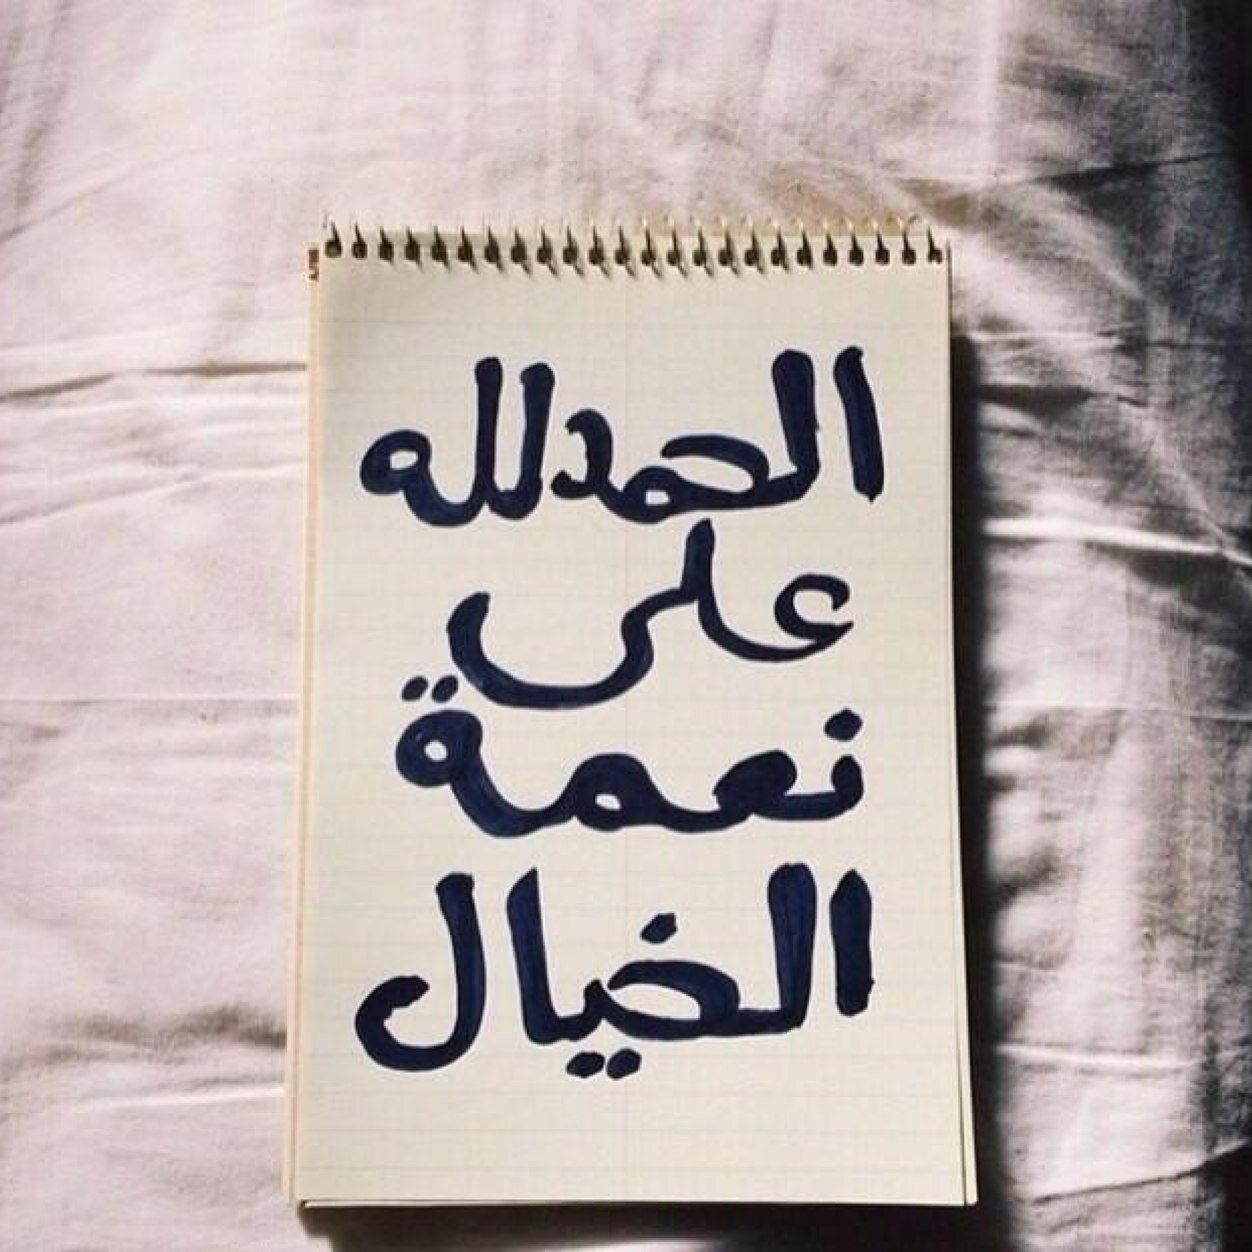 الحمدلله
على
نعمة
الخيال